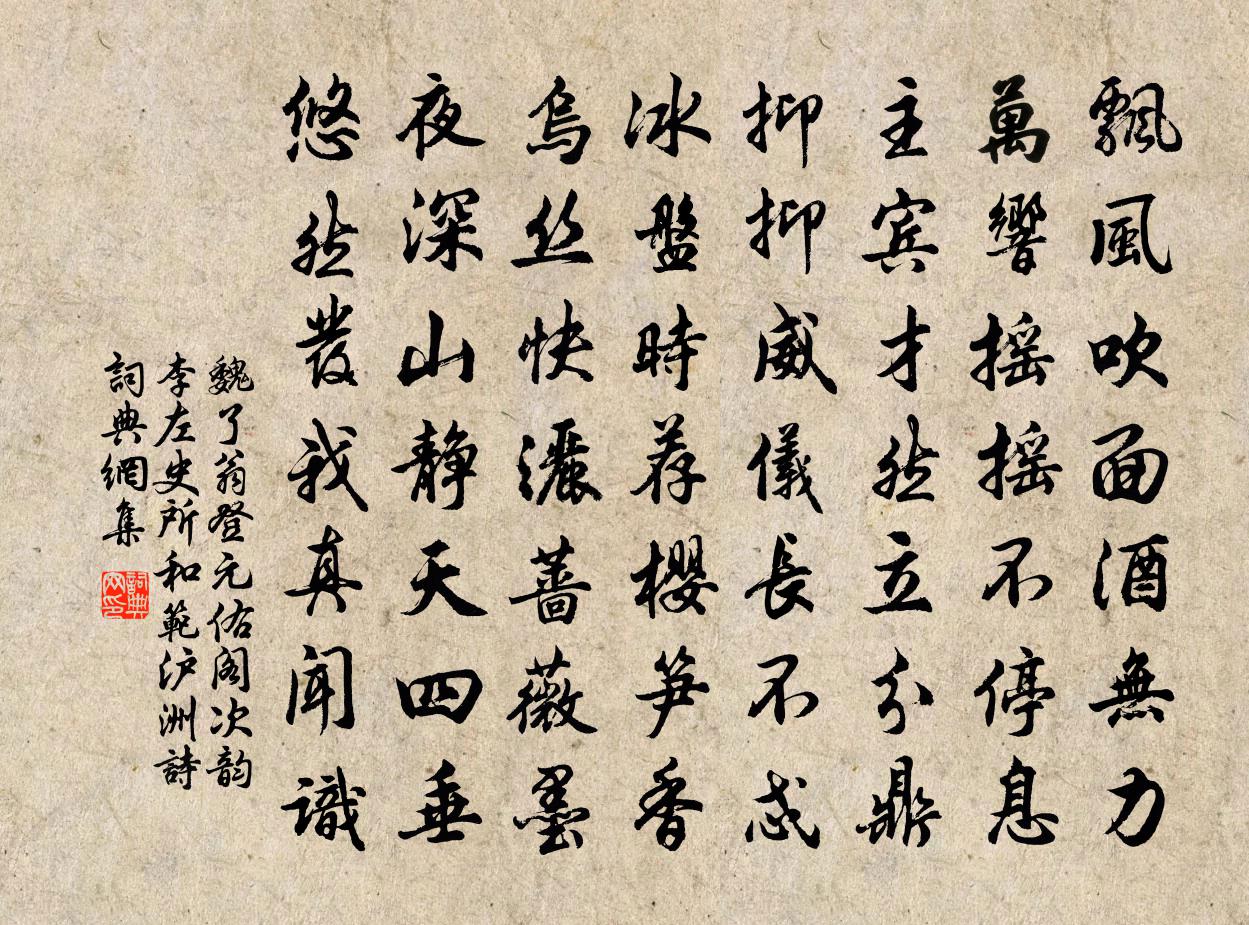 飄風吹面酒無力
萬響搖搖不停息
主宾才然立分鼎
抑抑威儀長不忒
冰盤時荐櫻笋香
烏丝快灑薔薇墨
夜深山静天四垂
悠然發我真聞識
魏了翁登元佑阁次韵
李左史所和範泸洲詩
詞典網集
詞典网印